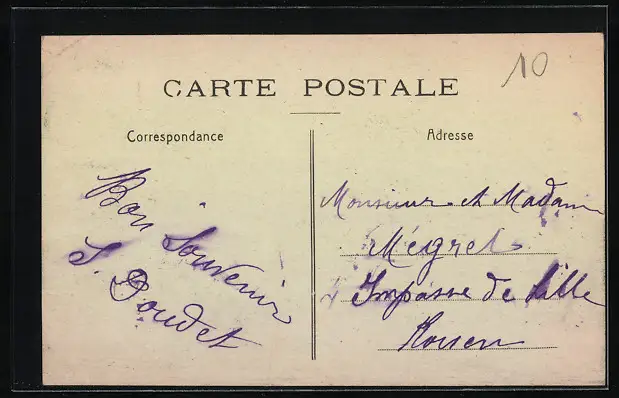 10
CARTE POSTALE
Correspondance
Adresse
Bon Souvenir
J. Doudet
Monsieur et Madame
Mégret
Impasse de Lille
Rouen